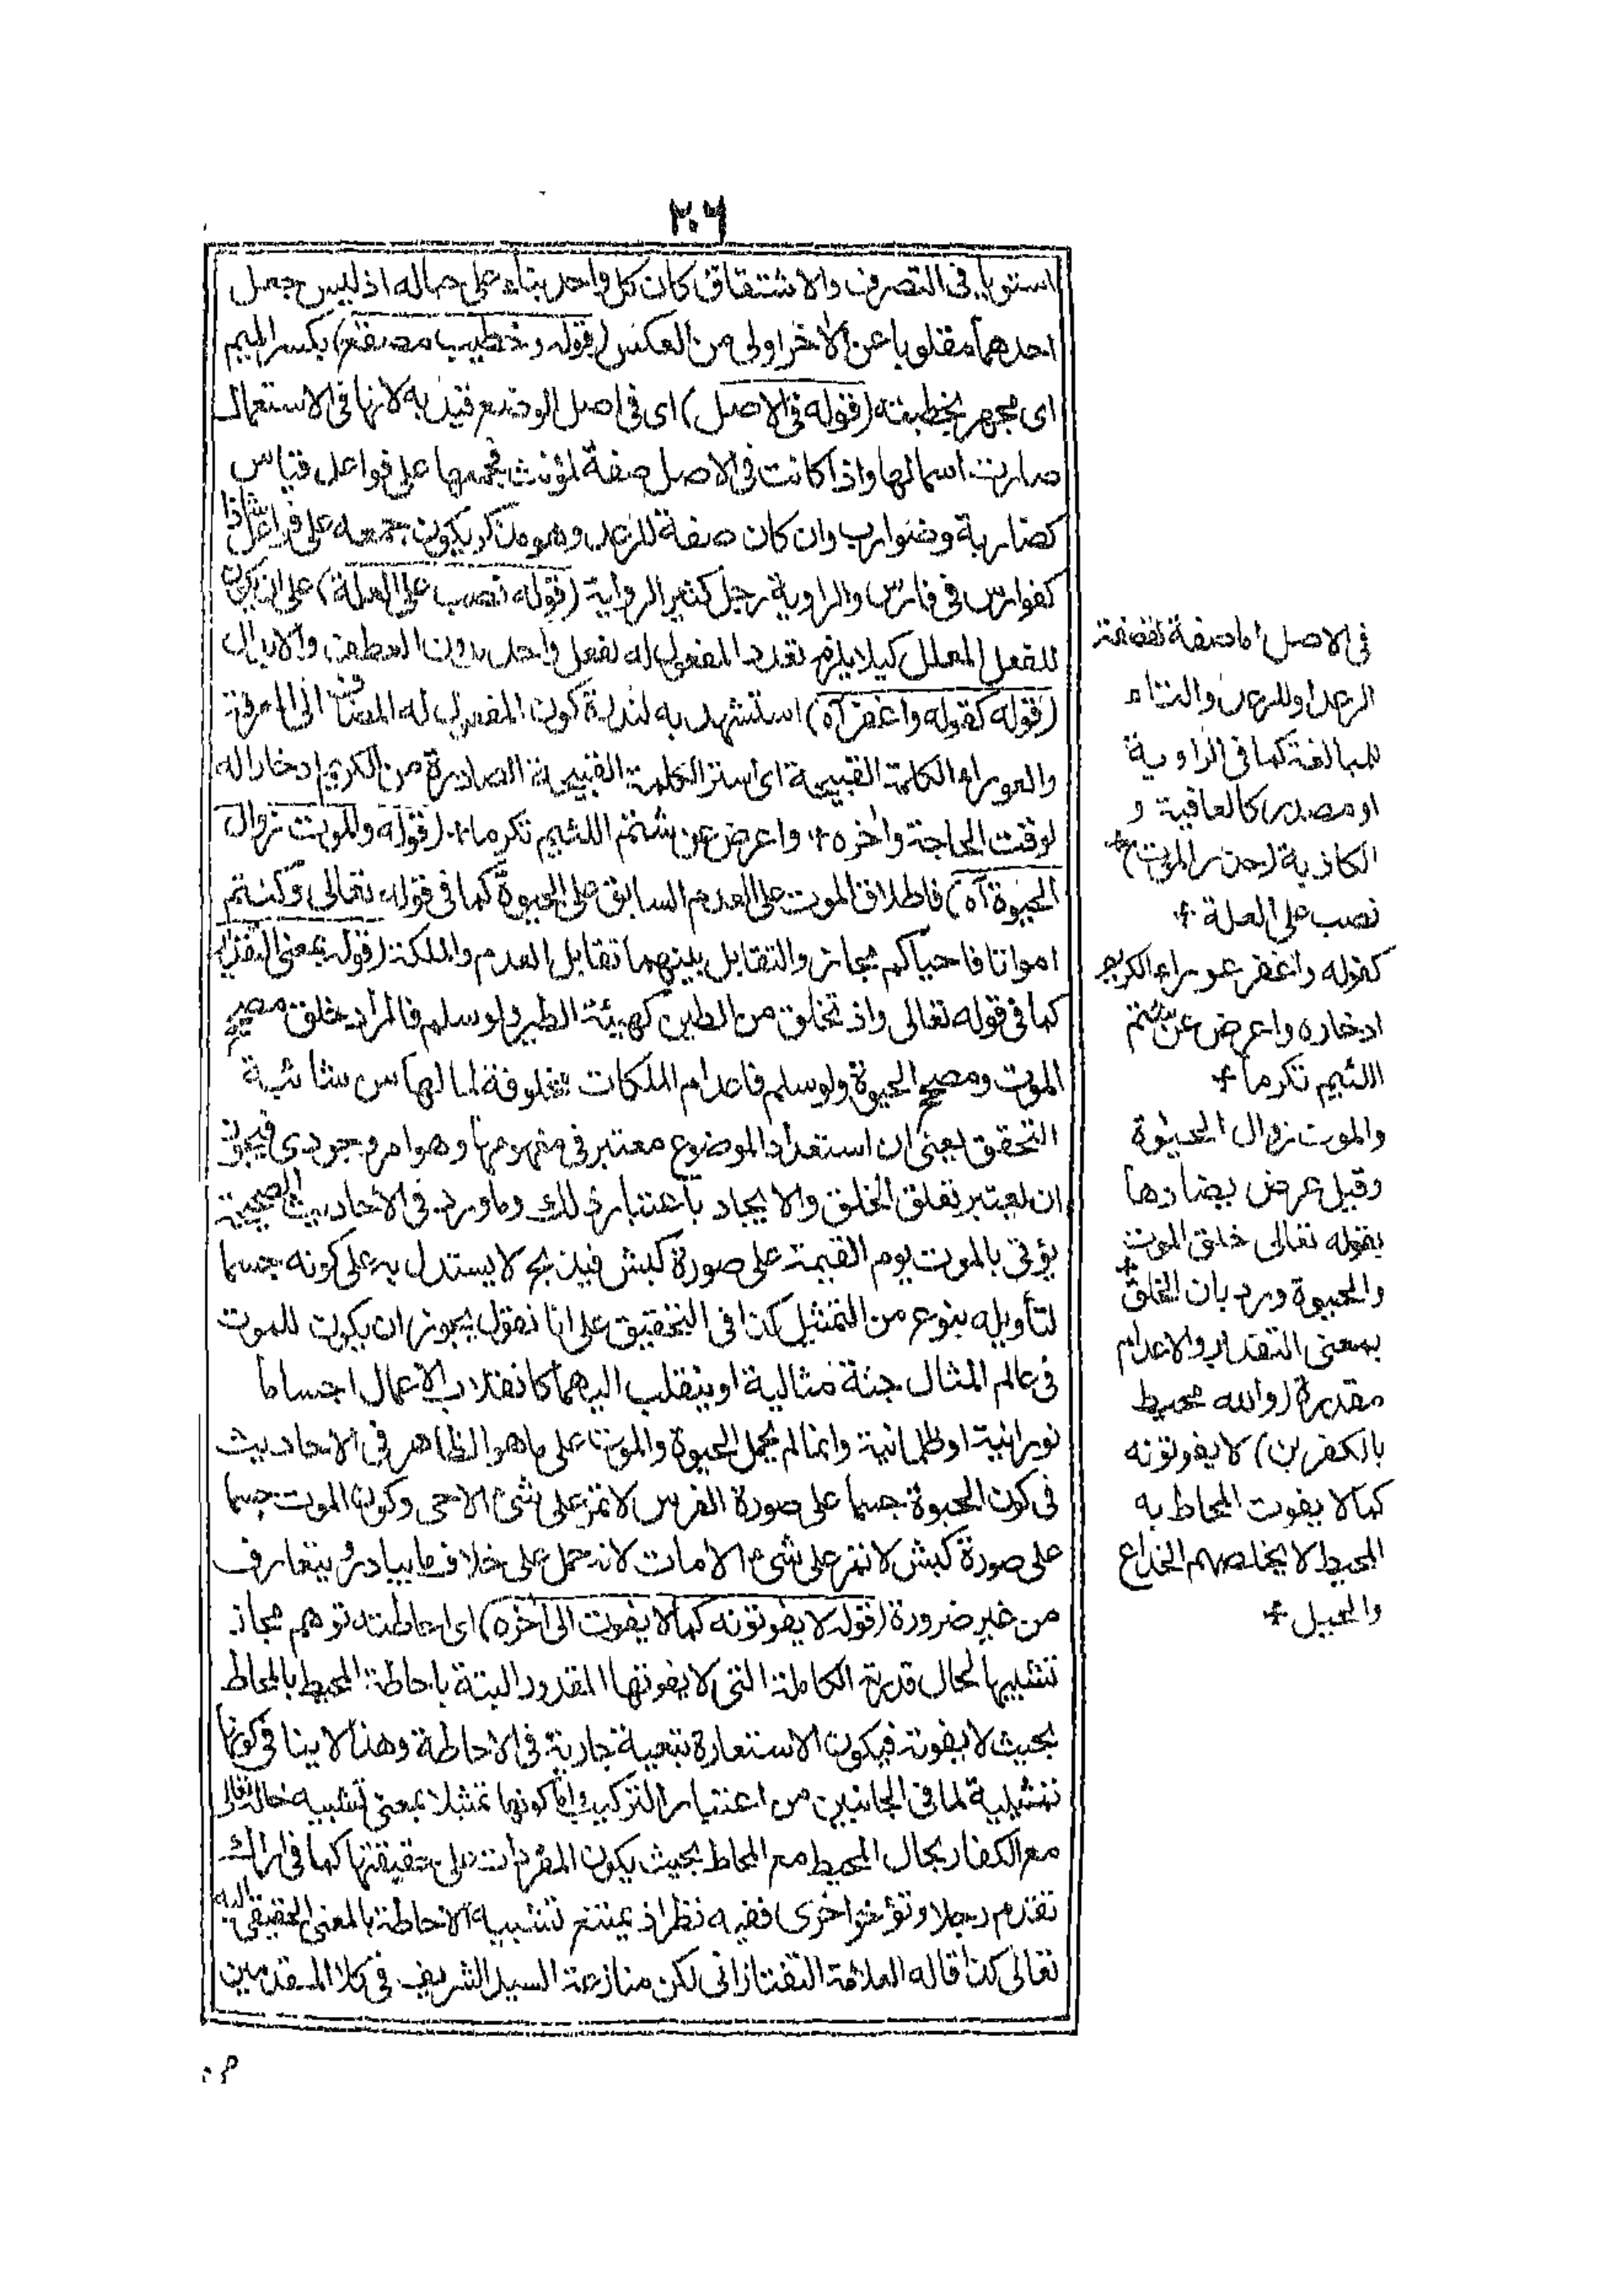 ٢٠٦
استويا في التصرف والاشتقاق كان كل واحد بناء على حاله اذ ليس جعل
احدهما مقلوبا عن الاخر اولى من العكس (قوله وخطيب مصقع) بكسر الميم
اى مجهر بخطبته (قوله فى الاصل) اى فى اصل الوضع قيد به لانها فى الاستعمال
صارت اسما لها واذا كانت فى الاصل صفة لمؤنث فجمعها على فواعل قياس
كضاربة وضوارب وان كان صفة للرعد وهو مذكر يكون جمعه على فواعل شاذا
كفوارس فى فارس والراوية رجل كثير الرواية (قوله نصب على العلة) على ان يكون
للفعل المعلل كيلا يلزم تعدد المفعول له لفعل واحد بدون العطف والابدال
(قوله كقوله واغفر آه) استشهد به لندرة كون المفعول له المضاف الى المعرفة
والعوراء الكلمة القبيحة اى استر الكلمة القبيحة الصادرة من الكريم ادخارا له
لوقت الحاجة واخره * واعرض عن شتم اللئيم تكرما * (قوله والموت زوال
الحيوة آه) فاطلاق الموت على العدم السابق على الحيوة كما فى قوله تعالى وكنتم
امواتا فاحياكم مجاز والتقابل بينهما تقابل العدم والملكة (قوله بمعنى التقدير
كما فى قوله تعالى واذ تخلق من الطين كهيئة الطير ولو سلم فالمراد خلق مصحح
الموت ومصحح الحيوة ولو سلم فاعدام الملكات مخلوقة لما لها من شائبة
التحقق بمعنى ان استعداد الموضوع معتبر فى مفهومها وهو امر وجودى فيجوز
ان يعتبر تعلق الخلق والايجاد باعتبار ذلك وما ورد فى الاحاديث الصحيحة
يؤتى بالموت يوم القيمة على صورة كبش فيذبح لا يستدل به على كونه جسما
لتأويله بنوع من التمثيل كذا فى التحقيق على انا نقول يجوز ان يكون للموت
فى عالم المثال جثة مثالية او ينقلب اليهما كانقلاب الاعمال اجساما
نورانية او ظلمانية وانما لم يحمل الحيوة والموت على ما هو الظاهر فى الاحاديث
فى كون الحيوة جسما على صورة الفرس لا تمر على شئ الا حى وكون الموت جسما
على صورة كبش لا تمر على شئ الا مات لانه حمل على خلاف ما يبادر و يتعارف
من غير ضرورة (قوله لا يفوتونه كما لا يفوت الى اخره) اى احاطته تو هم مجاز
تشبيها لحال قدرته الكاملة التى لا يفوتها المقدور البتة باحاطة المحيط بالمحاط
بحيث لا يفوته فيكون الاستعارة تبعية جارية فى الاحاطة وهذا لا ينافى كونها
تمثيلية لما فى الجانبين من اعتبار التركيب واما كونها تمثيلا بمعنى تشبيه حاله تعالى
مع الكفار بحال المحيط مع المحاط بحيث يكون المفردات على حقيقتها كما فى اراك
تقدم رجلا وتؤخر اخرى ففيه نظر اذ يمتنع تشبيه الاحاطة بالمعنى الحقيقى اليه
تعالى كذا قاله العلامة التفتازانى لكن منازعة السيد الشريف فى كلا المقدمين
فى الاصل اما صفة لقصفة
الرعد او للرعد والتاء
للمبالغة كما فى الراوية
او مصدر كالعافية و
الكاذبة (حذر الموت) *
نصب على العلة *
كقوله واغفر عوراء الكريم
ادخاره واعرض عن شتم
اللئيم تكرما *
والموت زوال الحيوة
وقيل عرض يضادها
بقوله تعالى خلق الموت
والحيوة ورد بان الخلق *
بمعنى التقدير والاعدام
مقدرة (والله محيط
بالكفرين) لا يفوتونه
كما لا يفوت المحاط به
المحيط لا يخلصهم الخداع
والحيل *